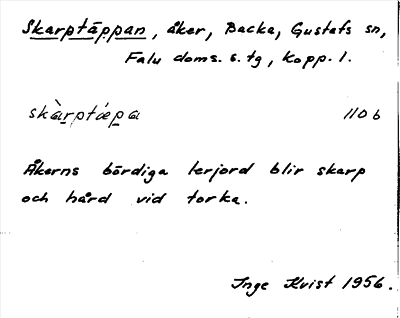 Skarptäppan, åker, Backa, Gustafs sn,
Falu doms. s. tg, Kopp. l.
skàrptǽpa 110 b
Åkerns bördiga lerjord blir skarp
och hård vid torka.
Inge Kvist 1956.